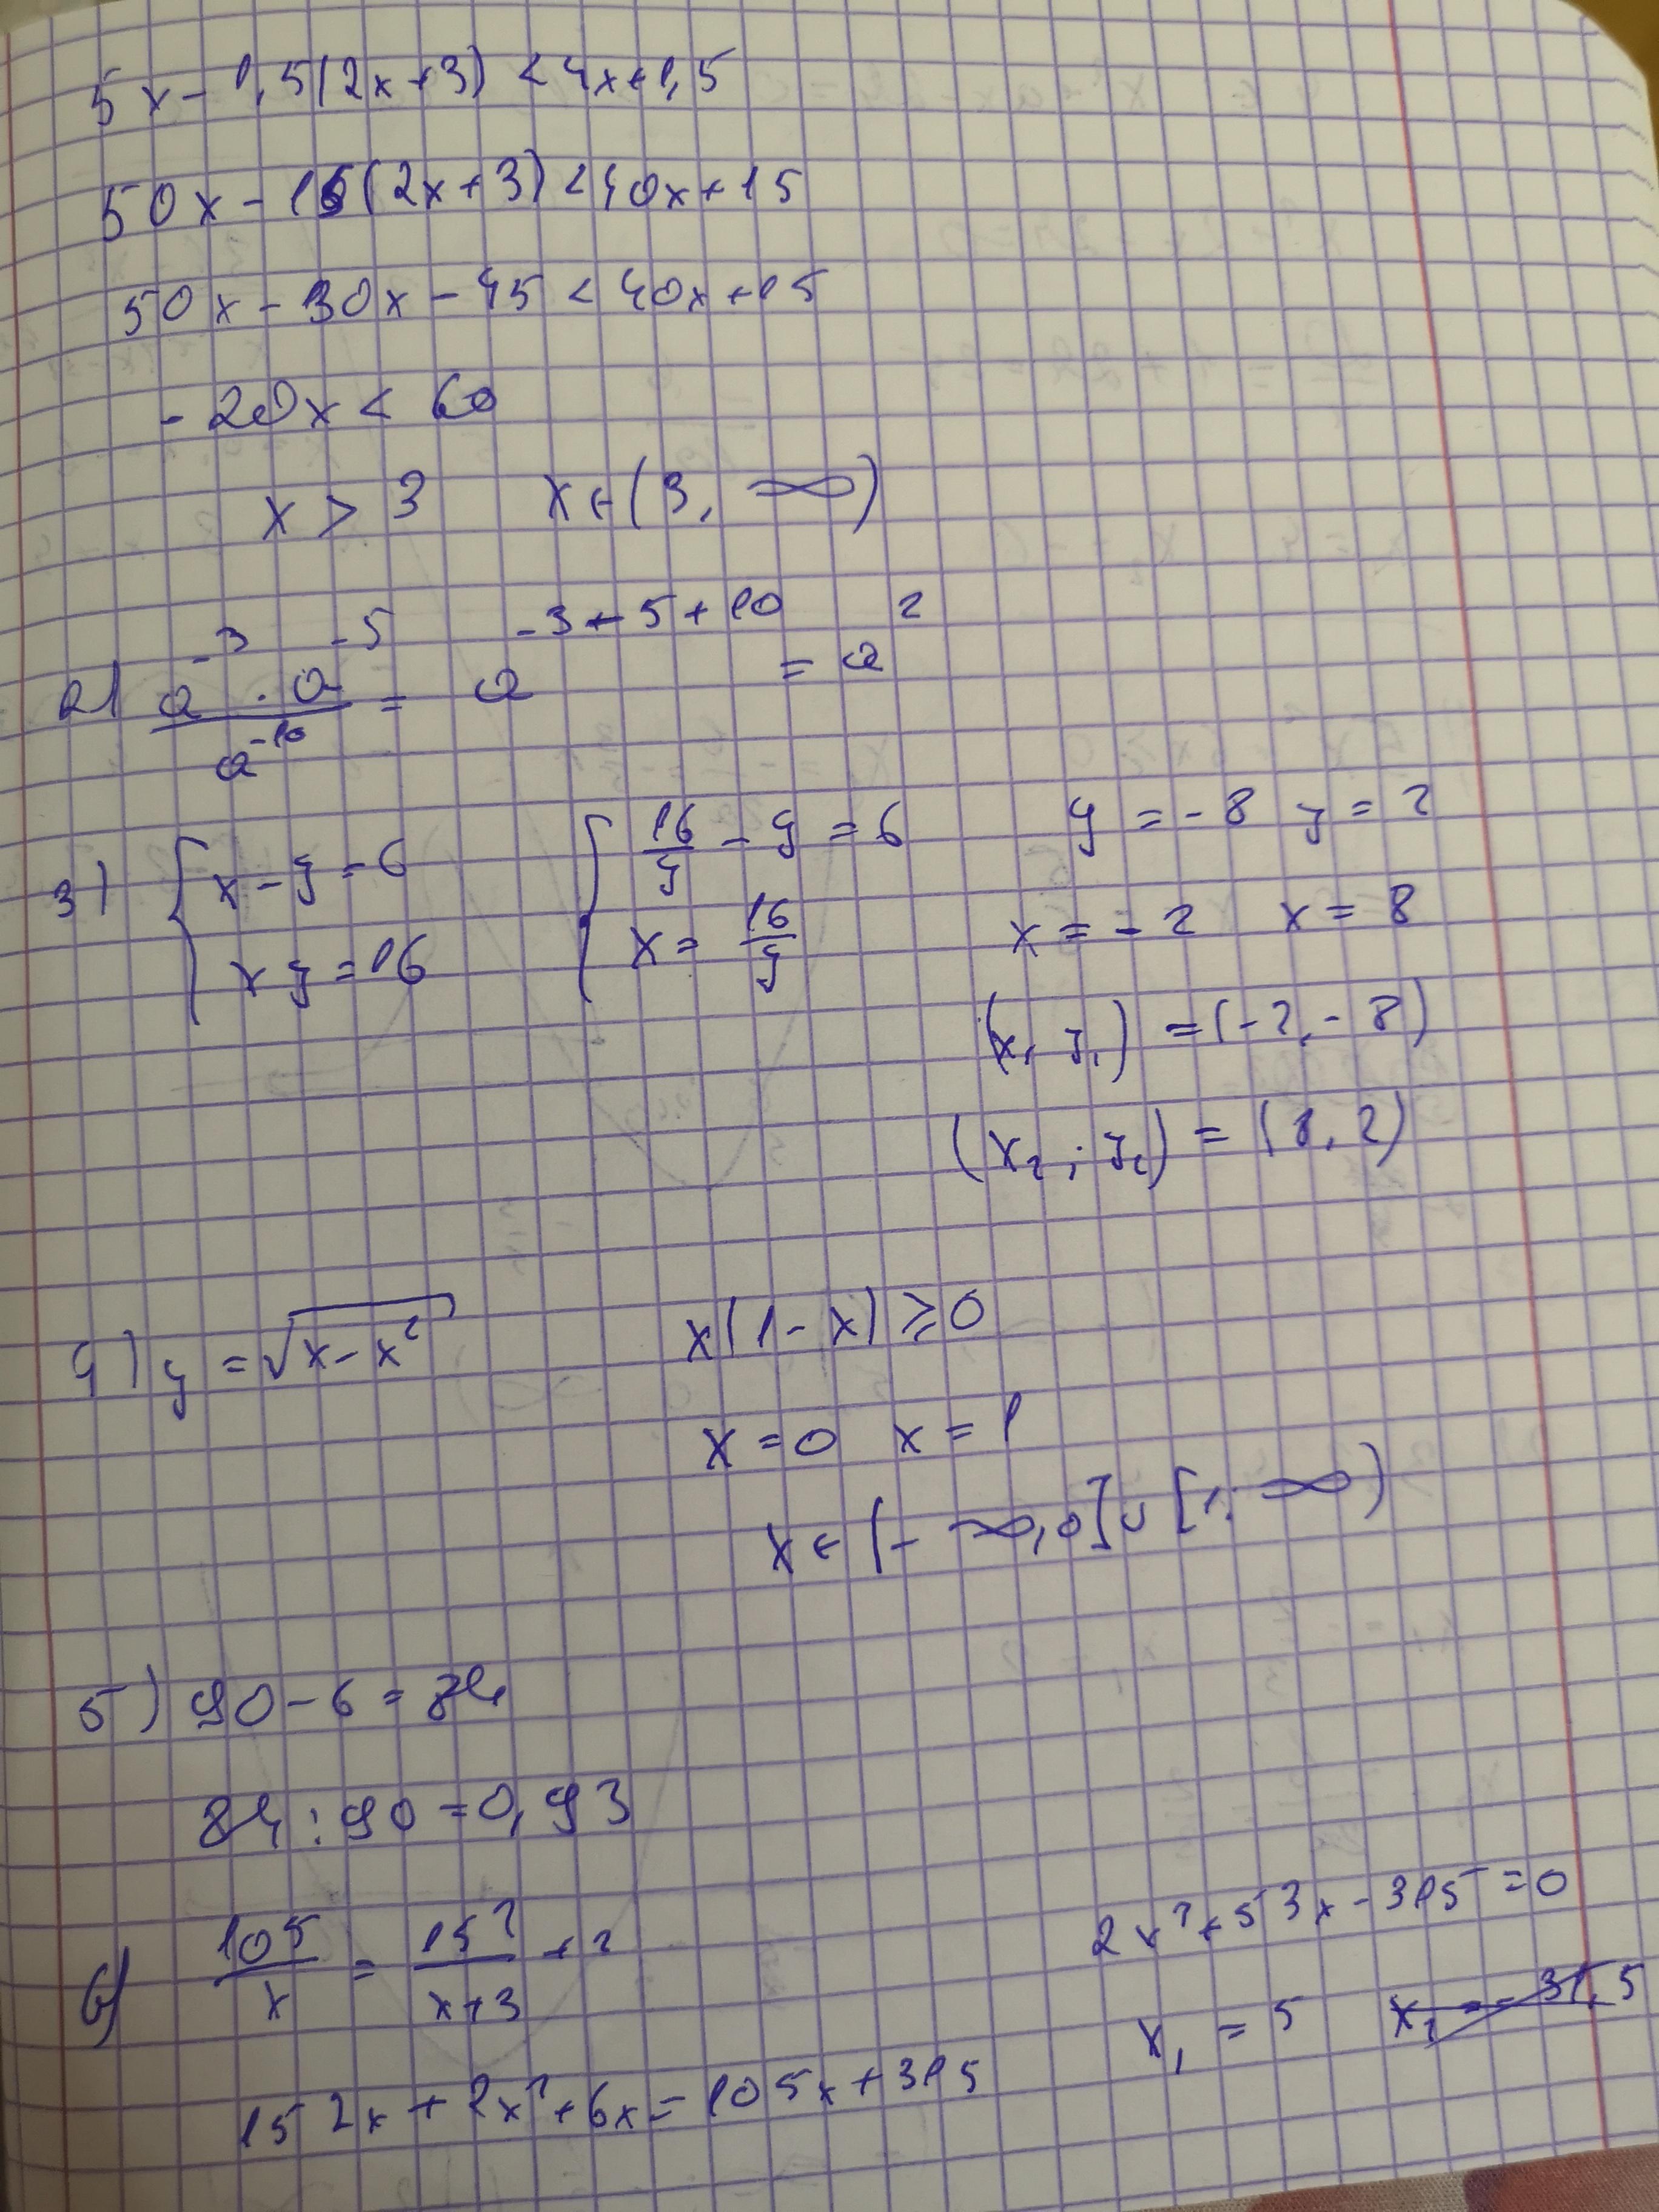 5x - 1,5(2x+3) < 4x+1,5
50x - 15(2x+3) < 40x+15
50x - 30x - 45 < 40x+15
-20x < 60
x > 3   x ∈ (3, ∞)
2) (a^-3 · a^-5)/a^-10 = a^(-3+-5+10) = a^2
3) { x - y = 6   { 16/y - y = 6   y = -8   y = 2
xy = 16   x = 16/y   x = -2   x = 8
(x, y,) = (-2, -8)
(x2; y2) = (8, 2)
4) y = √(x - x²)   x(1-x) ≥ 0
x = 0   x = 1
x ∈ (-∞, 0] ∪ [1; ∞)
5) 90 - 6 = 84
84 : 90 = 0,93
6) 105/x = 152/(x+3) + 2   2x² + 53x - 315 = 0
152x + 2x² + 6x = 105x + 315   x₁ = 5   x₂ = -31,5